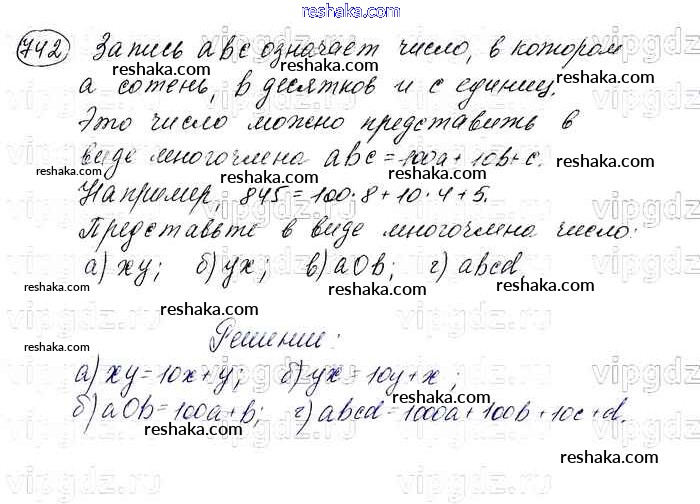 reshaka.com
742 Запись abc означает число, в котором
reshaka.com reshaka.com
а сотень, в десятков и с единиц.
Это число можно представить в
reshaka.com reshaka.com
виде многочлена abc=100a+10b+c.
reshaka.com
Например, 845=100·8+10·4+5.
reshaka.com reshaka.com
Представьте в виде многочлена число:
reshaka.com
а) xy; б) yx; в) a0b; г) abcd.
reshaka.com reshaka.com reshaka.com
Решение:
reshaka.com reshaka.com
а) xy=10x+y; б) yx=10y+x;
reshaka.com
б) a0b=100a+b; г) abcd=1000a+100b+10c+d.
reshaka.com reshaka.com
reshaka.com
vipgdz